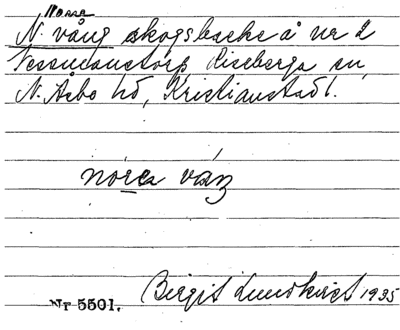 Norra
N. vång skogsbacke å nr 2
Vessmanstorp, Riseberga sn,
N. Åsbo hd, Kristianstads l.
nóra váŋ
Nr 5501. Birgit Lundkvist 1935